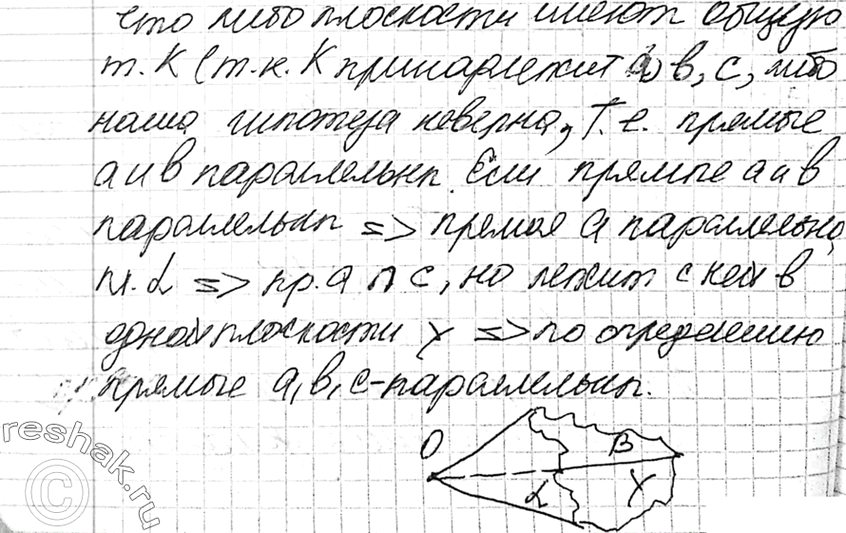 что либо плоскости имеют общую
т. К (т.к. К принадлежит а, в, с, либо
наша гипотеза неверна, т.е. прямые
а и в параллельны. Если прямые а и в
параллельны => прямая а параллельна
пл. α => пр. а ∩ с, но лежит с ней в
одной плоскости γ => по определению
прямые а, в, с - параллельны.
О
β
α
γ
reshak.ru
©